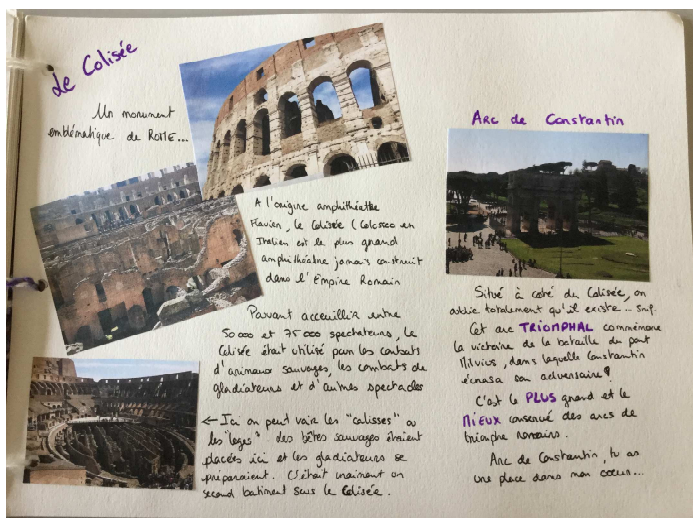 Le Colisée
Un monument
emblématique de ROME...
A l'origine amphithéatre
Flavien, le Colisée (Colosseo en
Italien est le plus grand
amphithéatre jamais construit
dans l'Empire Romain
Pouvant acceuillir entre
50 000 et 75 000 spectateurs, le
Colisée était utilisé pour les combats
d'animaux sauvages, les combats de
gladiateurs et d'autres spectacles
← Ici on peut voir les "calisses" ou
les "loges" des bêtes sauvages étaient
placées ici et les gladiateurs se
préparaient. C'était vraiment un
second batiment sous le Colisée.
Arc de Constantin
Situé à coté du Colisée, on
oublie totalement qu'il existe... snif.
Cet arc TRIOMPHAL commémore
la victoire de la bataille du pont
Milvius, dans laquelle Constantin
écrasa son adversaire!
C'est le PLUS grand et le
MIEUX conservé des arcs de
triomphe romains.
Arc de Constantin, tu as
une place dans mon coeur...